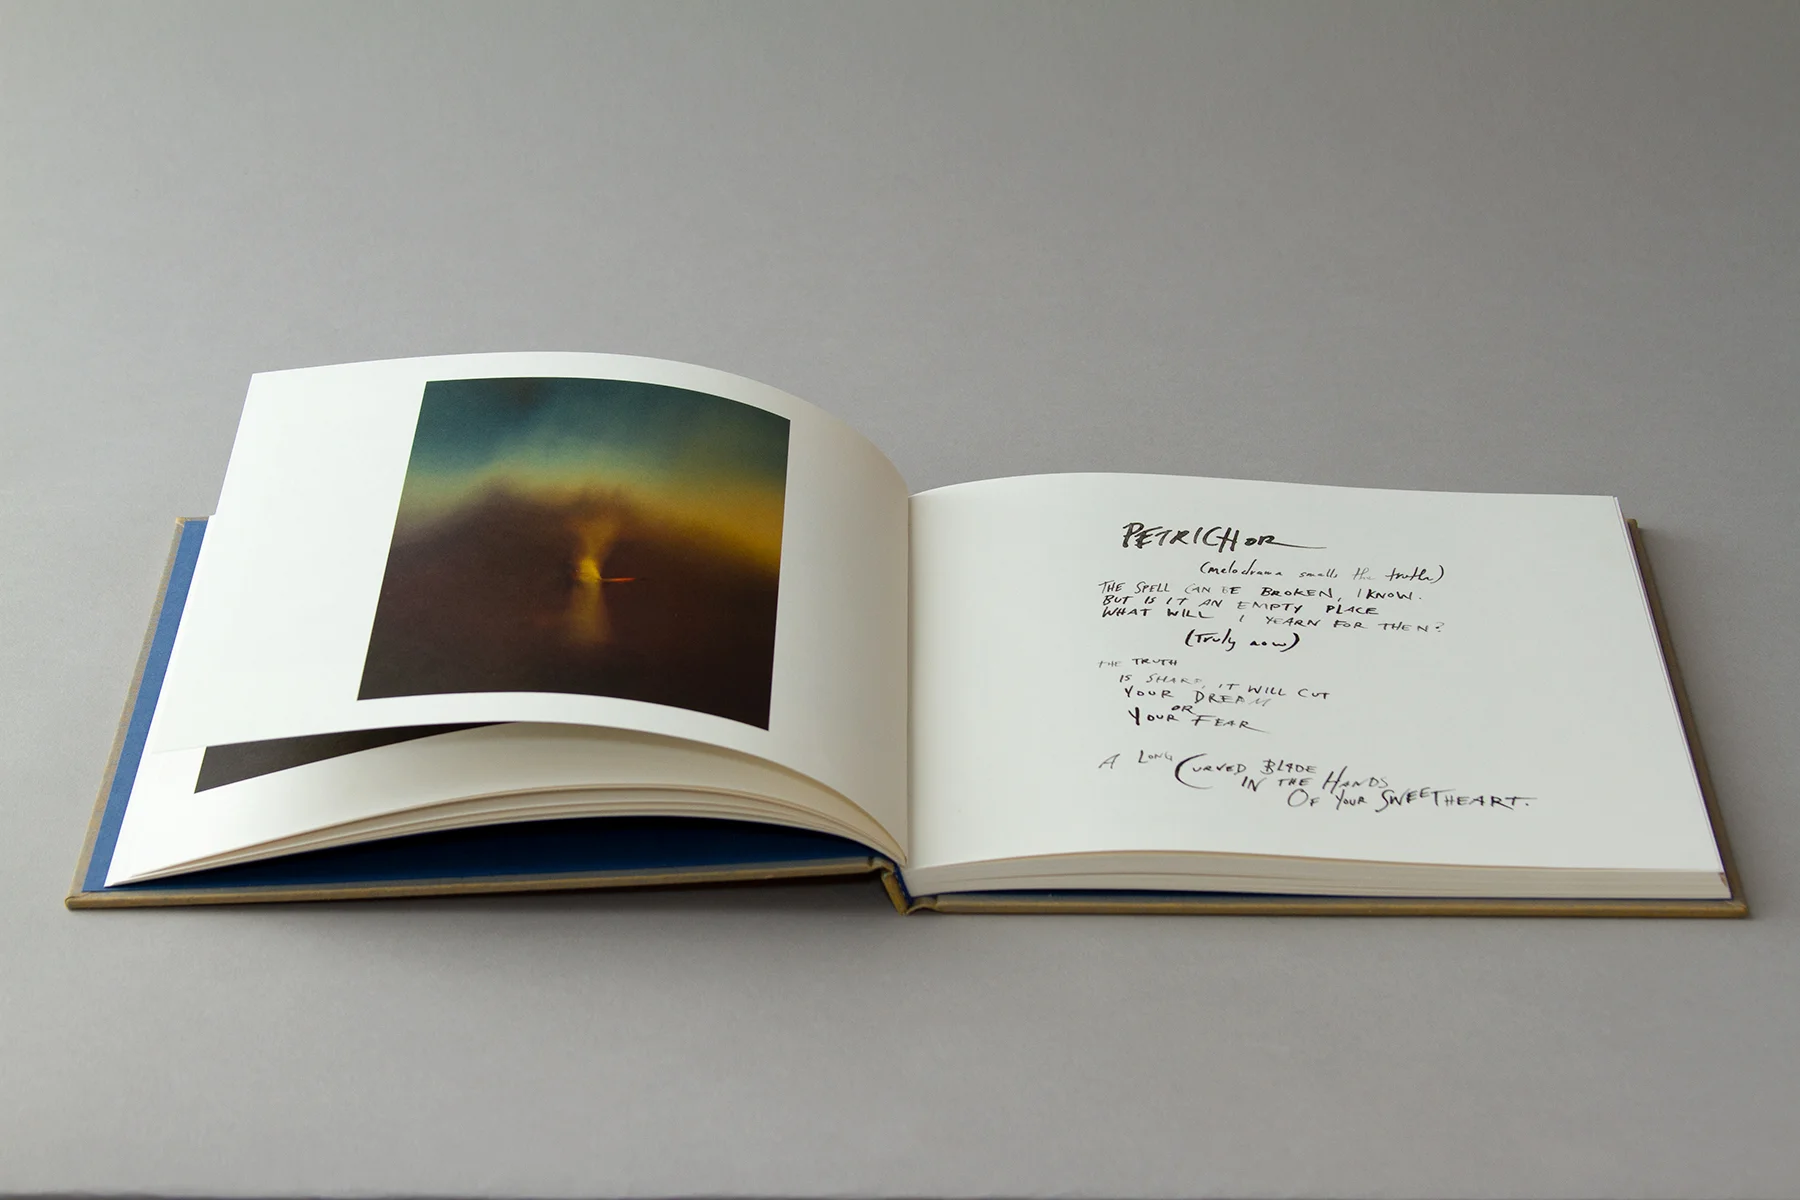 PETRICHOR
(melodrama smells the truth)
THE SPELL CAN BE BROKEN, I KNOW.
BUT IS IT AN EMPTY PLACE
WHAT WILL I YEARN FOR THEN?
(Truly now)
THE TRUTH
IS SHARP, IT WILL CUT
YOUR DREAM
OR
YOUR FEAR
A LONG CURVED BLADE
IN THE HANDS
OF YOUR SWEETHEART.